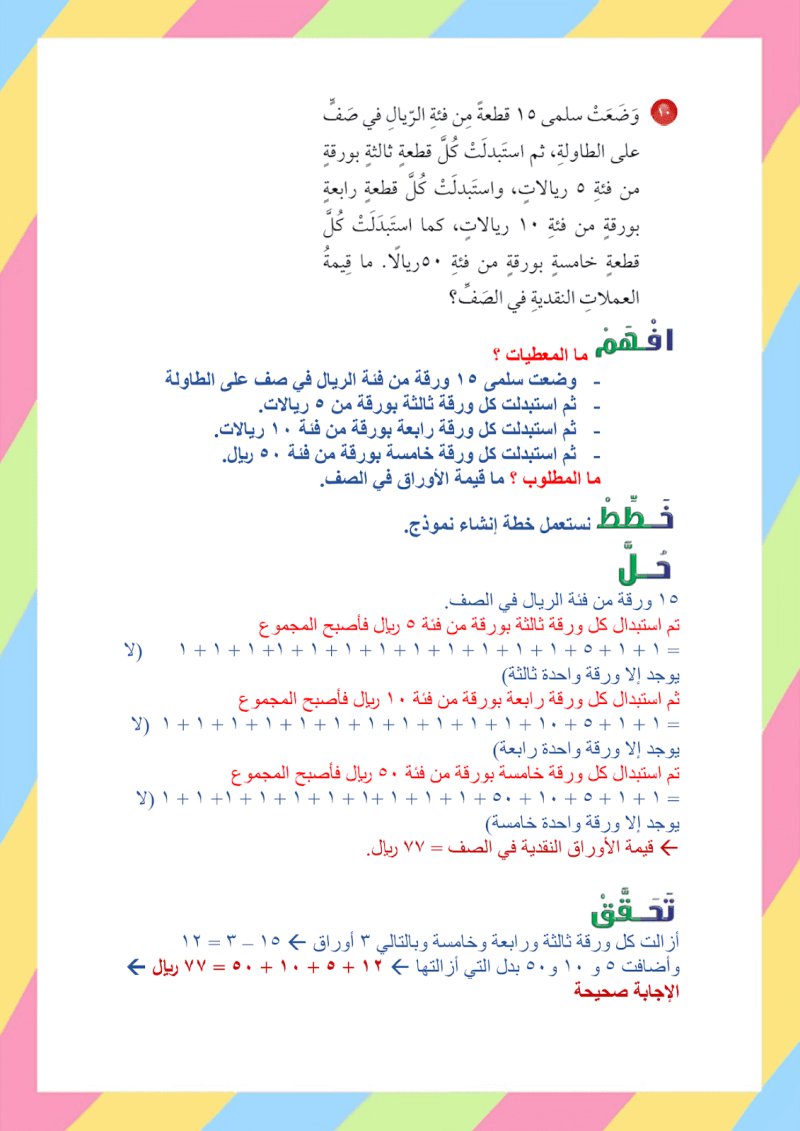 ١٠ وَضَعَتْ سلمى ١٥ قطعةً مِن فئةِ الرّيالِ في صَفٍّ
على الطاولةِ، ثم استَبدلَتْ كُلَّ قطعةٍ ثالثةٍ بورقةٍ
من فئةِ ٥ ريالاتٍ، واستَبدلَتْ كُلَّ قطعةٍ رابعةٍ
بورقةٍ من فئةِ ١٠ ريالاتٍ، كما استَبدَلَتْ كُلَّ
قطعةٍ خامسةٍ بورقةٍ من فئةِ ٥٠ريالًا. ما قِيمةُ
العملاتِ النقديةِ في الصَفِّ؟
افْـهَـمْ ما المعطيات ؟
- وضعت سلمى ١٥ ورقة من فئة الريال في صف على الطاولة
- ثم استبدلت كل ورقة ثالثة بورقة من ٥ ريالات.
- ثم استبدلت كل ورقة رابعة بورقة من فئة ١٠ ريالات.
- ثم استبدلت كل ورقة خامسة بورقة من فئة ٥٠ ريال.
ما المطلوب ؟ ما قيمة الأوراق في الصف.
خَـطِّطْ نستعمل خطة إنشاء نموذج.
حُـلَّ
١٥ ورقة من فئة الريال في الصف.
تم استبدال كل ورقة ثالثة بورقة من فئة ٥ ريال فأصبح المجموع
= ١ + ١ + ٥ + ١ + ١ + ١ + ١ + ١ + ١ + ١ + ١ +١ + ١ + ١ + ١ (لا
يوجد إلا ورقة واحدة ثالثة)
ثم استبدال كل ورقة رابعة بورقة من فئة ١٠ ريال فأصبح المجموع
= ١ + ١ + ٥ + ١٠ + ١ + ١ + ١ + ١ + ١ + ١ + ١ + ١ + ١ + ١ + ١ (لا
يوجد إلا ورقة واحدة رابعة)
تم استبدال كل ورقة خامسة بورقة من فئة ٥٠ ريال فأصبح المجموع
= ١ + ١ + ٥ + ١٠ + ٥٠ + ١ + ١ + ١ +١ + ١ + ١ + ١ +١ + ١ + ١ (لا
يوجد إلا ورقة واحدة خامسة)
← قيمة الأوراق النقدية في الصف = ٧٧ ريال.
تَحَـقَّقْ
أزالت كل ورقة ثالثة ورابعة وخامسة وبالتالي ٣ أوراق ← ١٥ – ٣ = ١٢
وأضافت ٥ و ١٠ و٥٠ بدل التي أزالتها ← ١٢ + ٥ + ١٠ + ٥٠ = ٧٧ ريال ←
الإجابة صحيحة